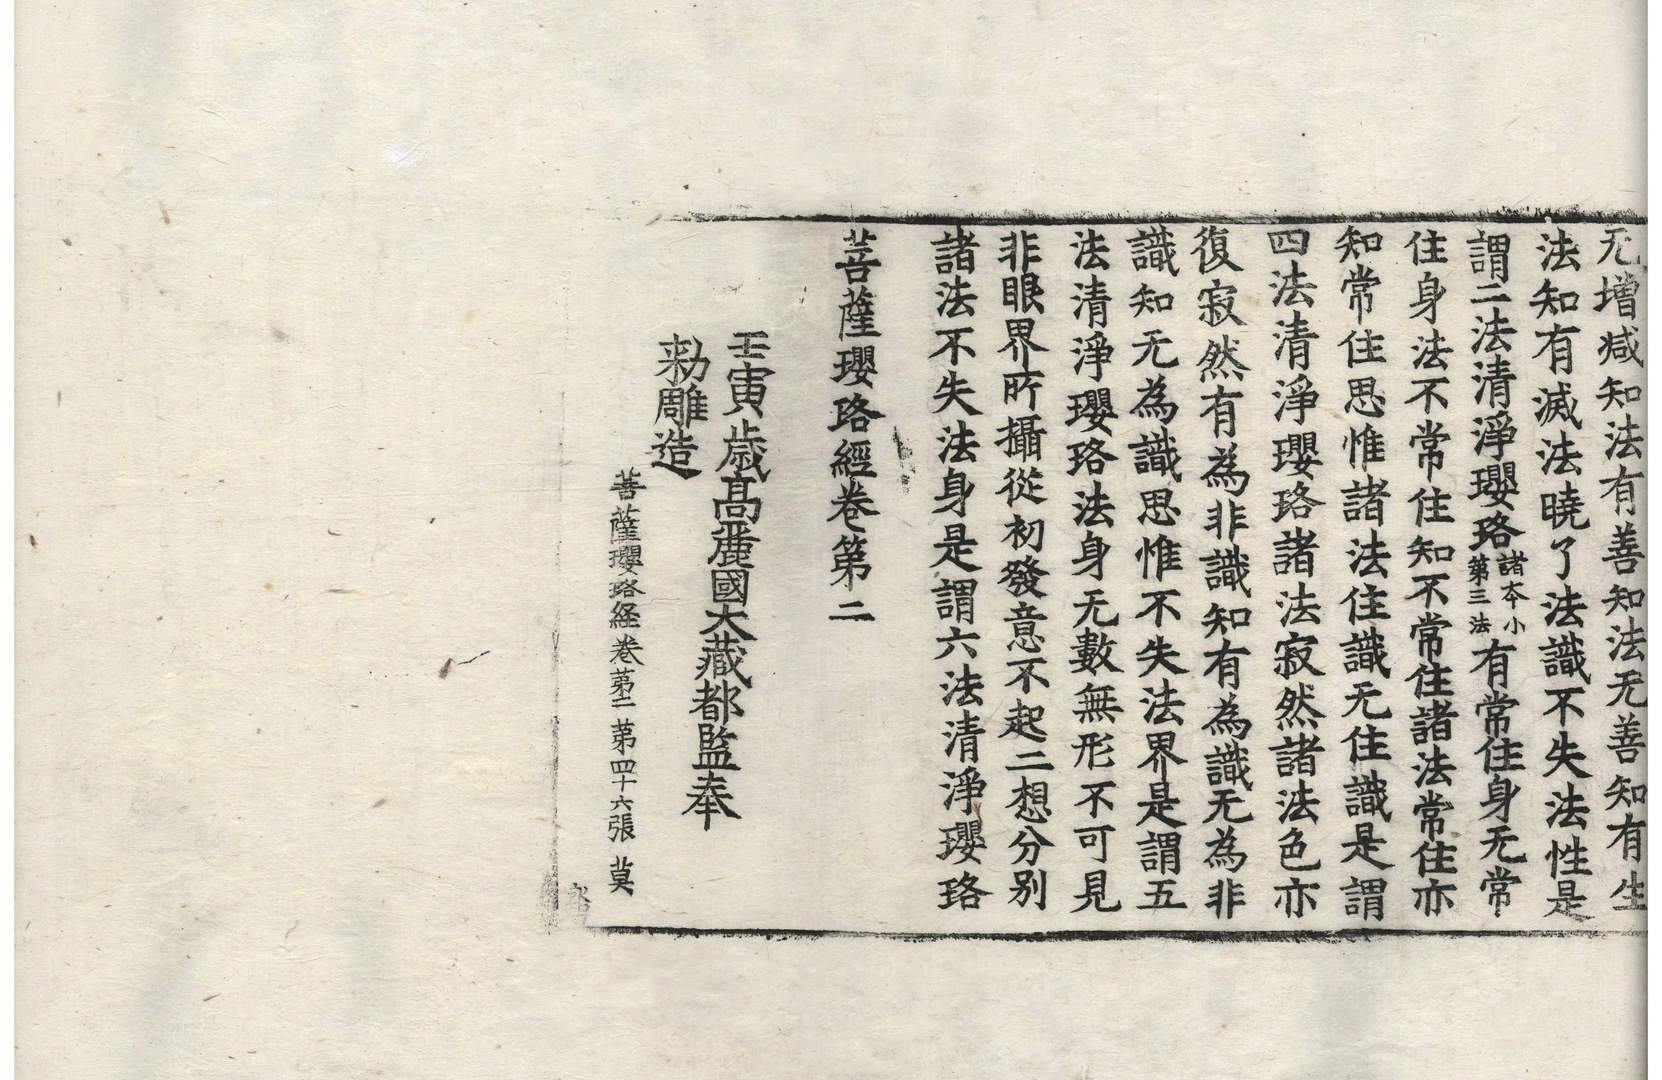 无增減知法有善知法无善知有生
法知有滅法曉了法識不失法性是
謂二法清淨瓔珞諸本小第三法有常住身无常
住身法不常住知不常住諸法常住亦
知常住思惟諸法住識无住識是謂
四法清淨瓔珞諸法寂然諸法色亦
復寂然有為非識知有為識无為非
識知无為識思惟不失法界是謂五
法清淨瓔珞法身无數無形不可見
非眼界所攝從初發意不起二想分別
諸法不失法身是謂六法清淨瓔珞
菩薩瓔珞經卷第二
壬寅歲高麗國大藏都監奉
勑雕造
菩薩瓔珞経卷苐二 苐四十六張 莫